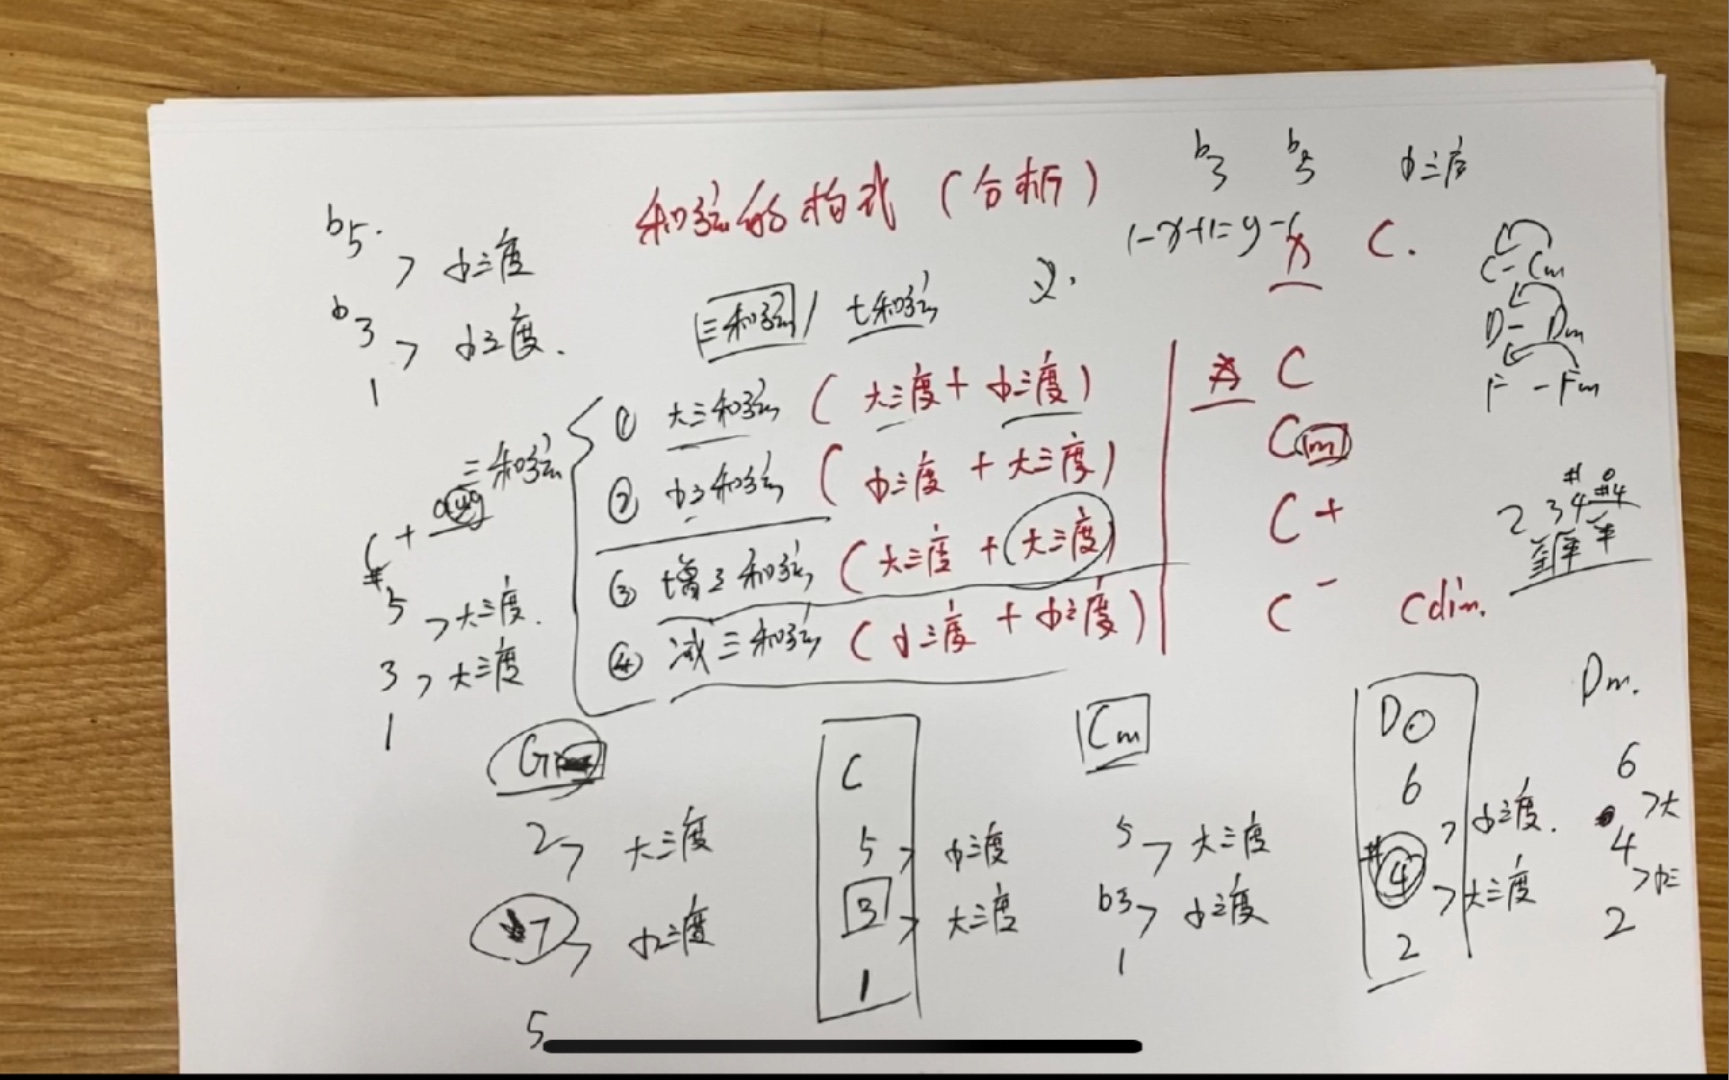 和弦的构成（分析）
b3 b5 小三度
b5.
> 小三度
b3
> 小三度.
1
C.
C - Cm
D - Dm
F - Fm
三和弦 / 七和弦
2.
三和弦
① 大三和弦 (大三度 + 小三度)
C
② 小三和弦 (小三度 + 大三度)
Cm
③ 增三和弦 (大三度 + 大三度)
C+
④ 减三和弦 (小三度 + 小三度)
C- Cdim.
2 3 #4 #4
全 半 半
C+ aug
#5
> 大三度.
3
> 大三度
1
G
2
> 大三度
7
> 小三度
5
C
5
> 小三度
3
> 大三度
1
Cm
5
> 大三度
b3
> 小三度
1
D
6
> 小三度.
#4
> 大三度
2
Dm.
6
> 大
4
> 小三
2